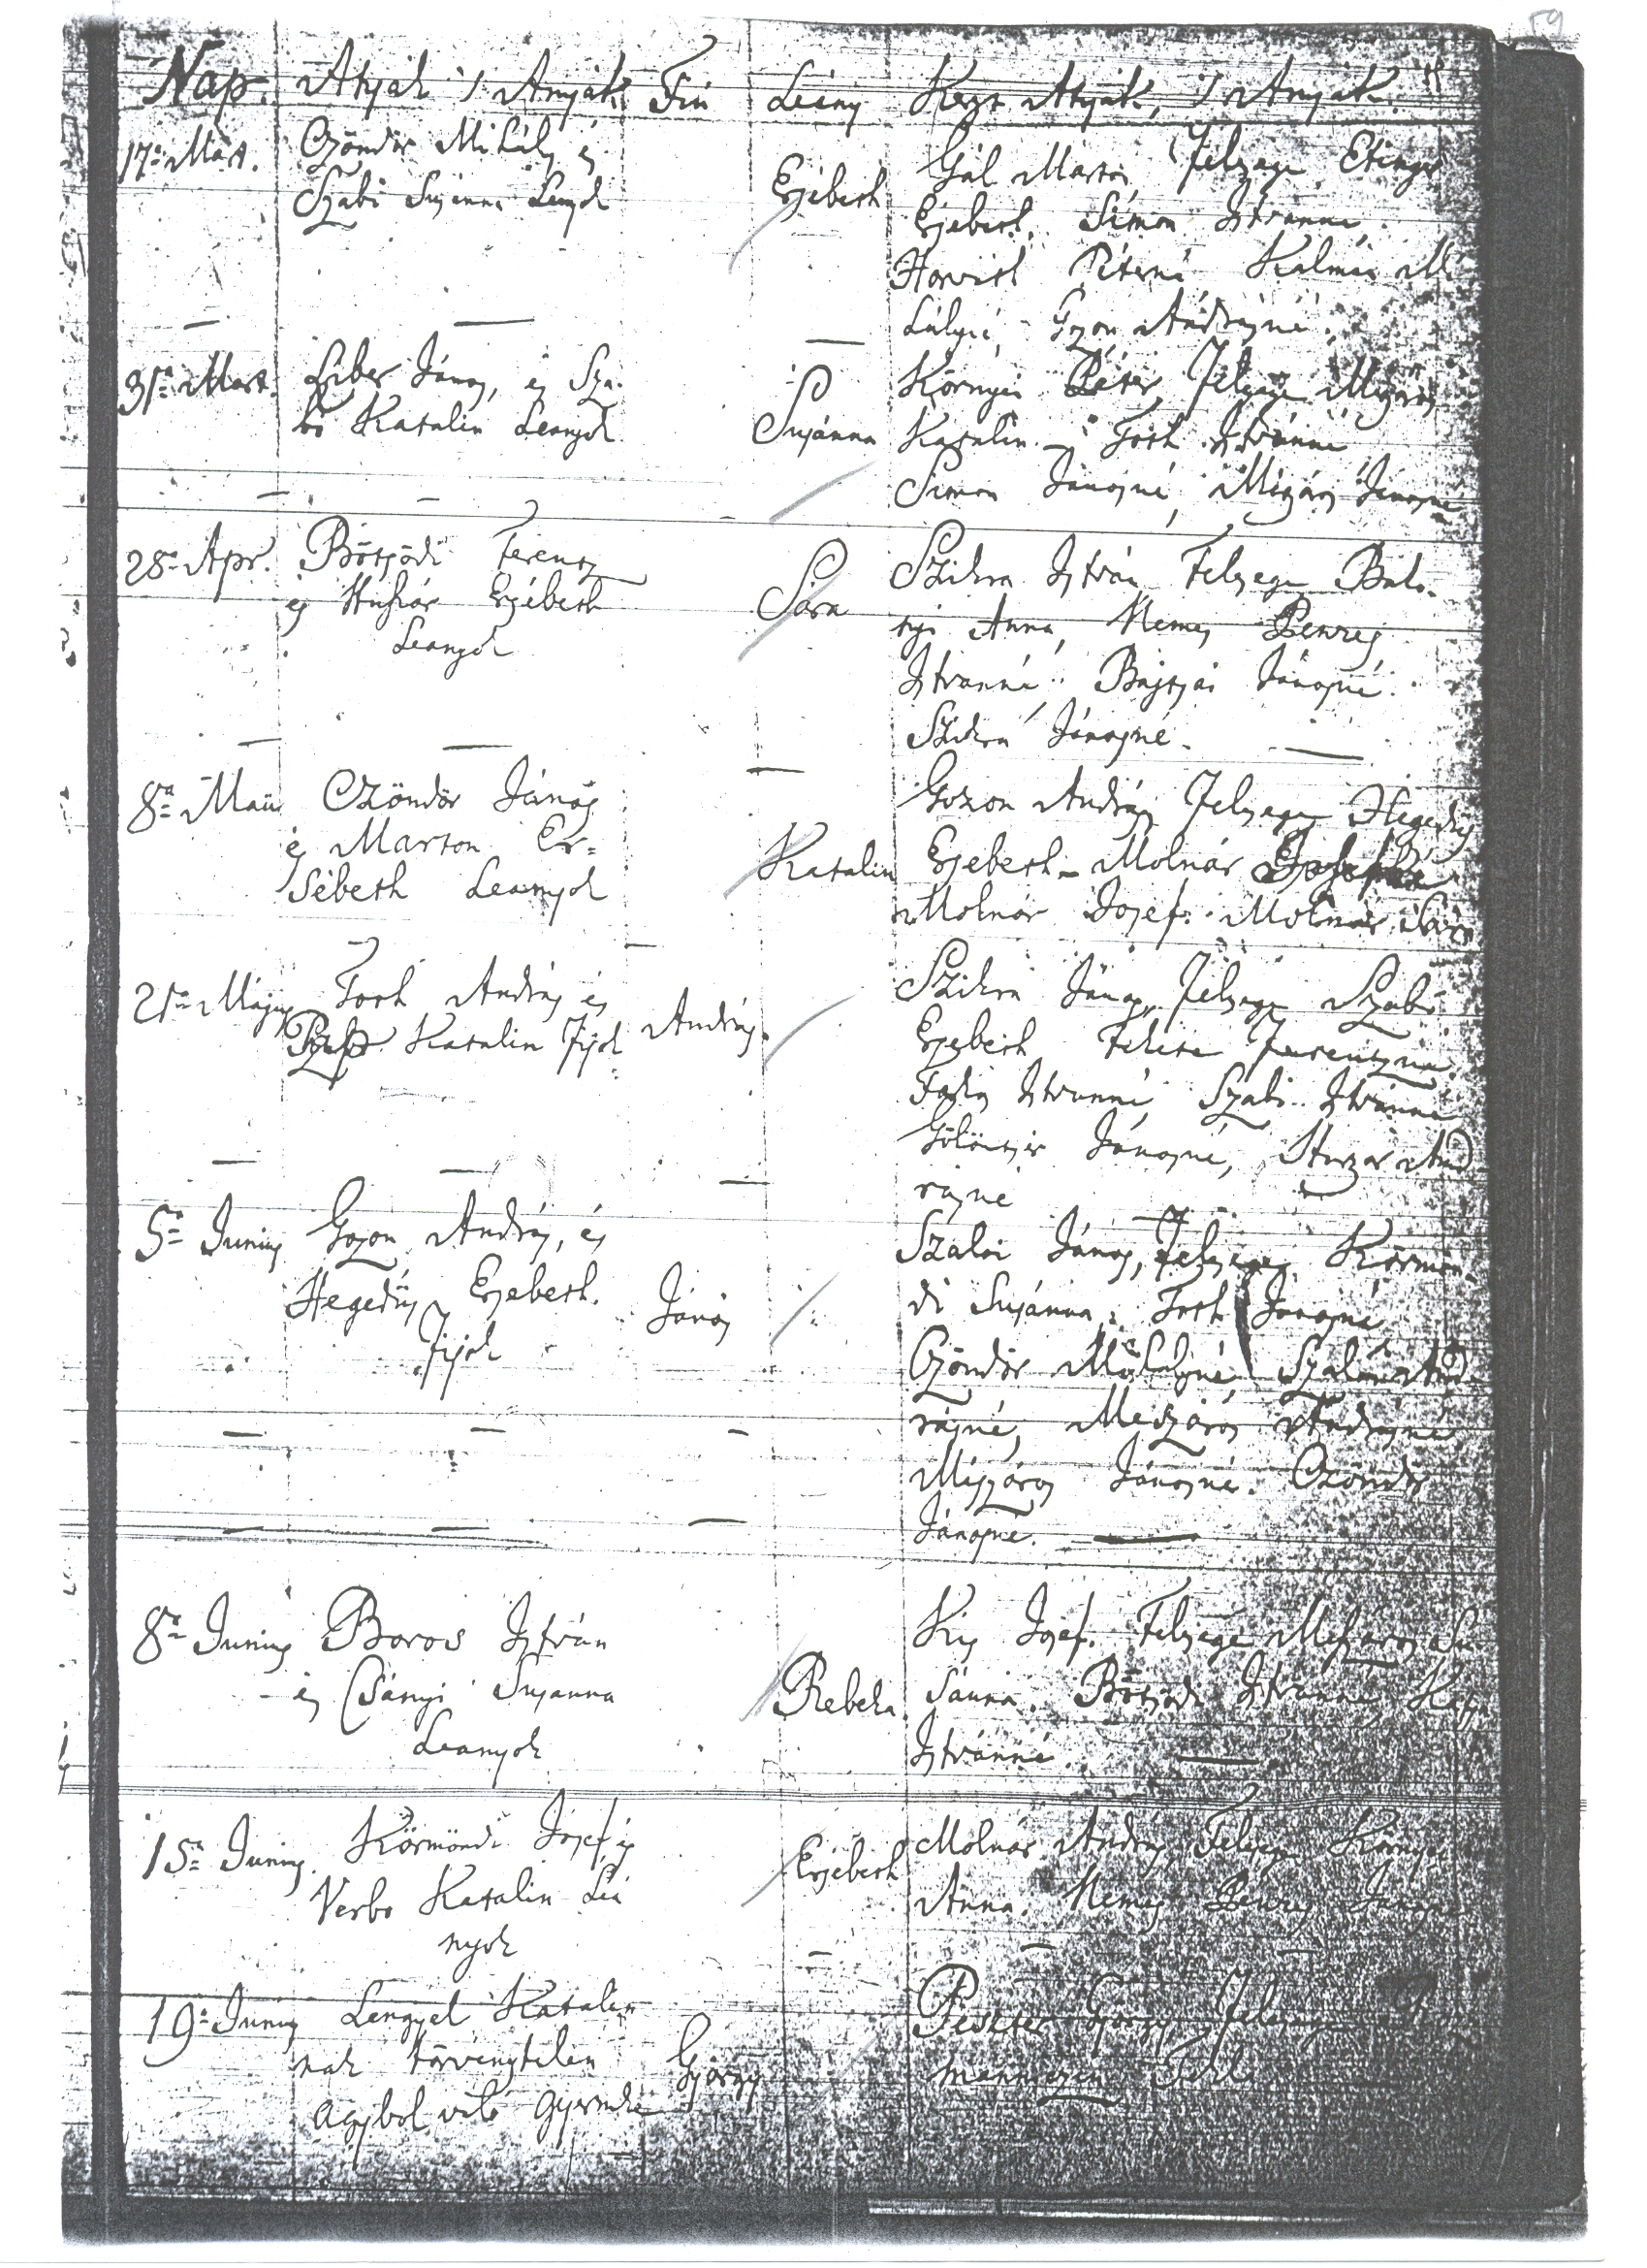 59
Nap. Atyák 's Anyák Fiu Leány Kereszt Atyák, 's Anyák.
17a Mart.
Czöndör Mihály és
Szabó Susánna Leányok
Ersébeth
Gál Márton Felesége
Ersébeth. Simon Istvánné,
Horváth Péterné Kálmán Mi
hályné, Gozon Andrásné.
31a Mart.
Liber János, és Sza-
bó Katalin Leanyok
Susánna
Környei Péter Felesége Mészáros
Katalin – Toth Istvánné
Simon Jánosné, Mészáros Jánosné
28a Apr.
Bötsödi Ferentz
és Huszár Ersébeth
Leanyok
Sára
Szikra István Felesége
Anna, Nemes
Istvánné. Jánosné.
Szikra Jánosné.
8a Maii
Czöndör János
és Marton Er=
sébeth Leanyok
Katalin
Gozon András Felesége Hegedűs
Ersebeth – Molnár
Molnár Josef. Molnár Sára
21a Május
Toth András és
Katalin Fijok
András.
Szikra János Felesége Szabó
Ersébeth Ferentzné.
Istvánné, Szabó Istvánné
Jánosné, Huszár And
rásné
5a Junius
Gozon András, és
Hegedűs Ersebeth.
Fijok
János
Szalai János, Felesége Körmön-
di Susánna, Toth Jánosné,
Czöndör Mihályné, Szalai And-
rásné, Meszáros Andrásné
Mészáros Jánosné. Czöndör
Jánosné.
8a Junius
Boros István
és Csányi Susanna
Leanyok
Rebeka
Kis Josef. Felesége Mészáros Su
sánna. Bötsödi Istvánné
Istvánné.
15a Junius.
Körmöndi Josef és
Verbo Katalin Leá
nyok
Ersébeth
Molnár András Felesége Környei
Anna. Nemes Jánosné
19a Junius
Lengyel Katalin
nak törvénytelen
agybol való gyermeke
György
György, Felesége